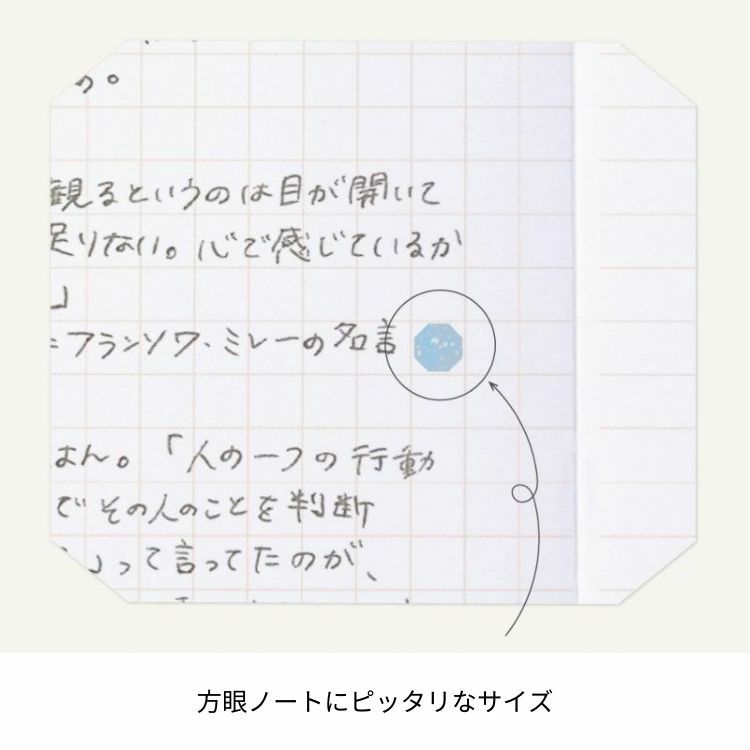 う。
観るというのは目が開いて
足りない。心で感じているか
」
=フランソワ・ミレーの名言
よん。「人の一つの行動
でその人のことを判断
」って言ってたのが、
方眼ノートにピッタリなサイズ